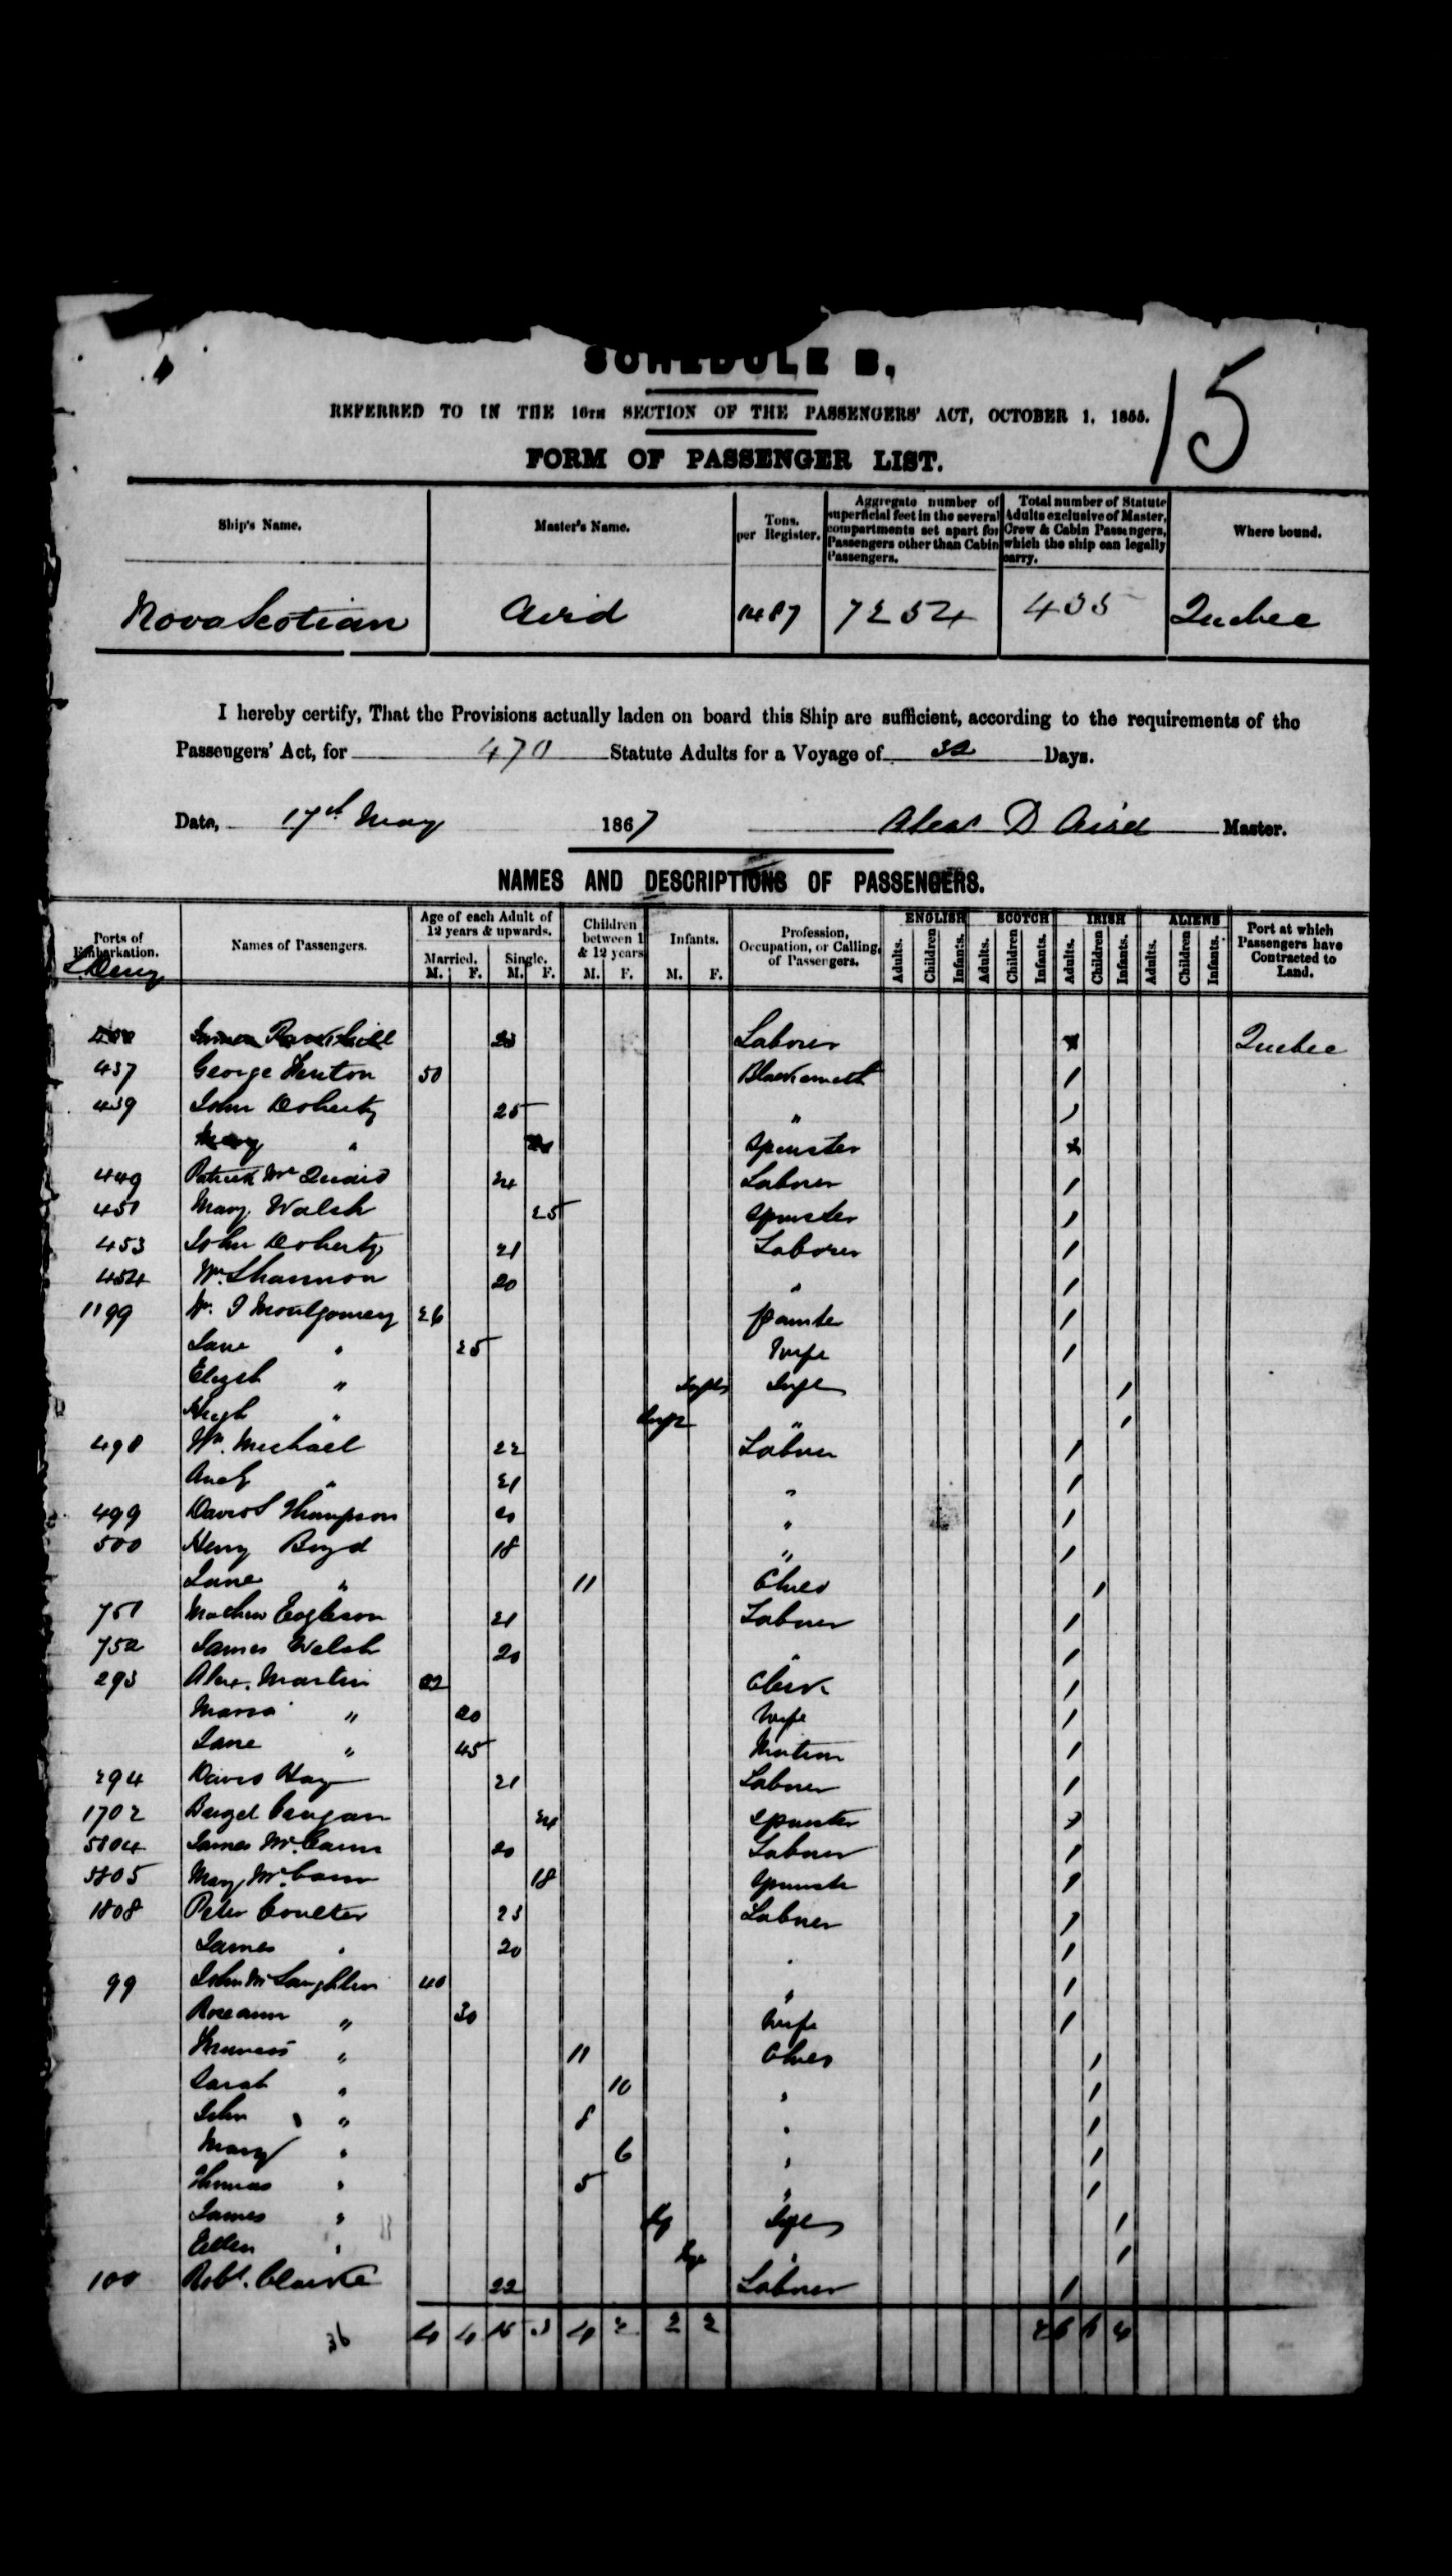 SCHEDULE B.
15
REFERRED TO IN THE 16TH SECTION OF THE PASSENGERS' ACT, OCTOBER 1, 1855.
FORM OF PASSENGER LIST.
Ship's Name. Master's Name. Tons. per Register. Aggregate number of superficial feet in the several compartments set apart for Passengers other than Cabin Passengers. Total number of Statute Adults exclusive of Master, Crew & Cabin Passengers, which the ship can legally carry. Where bound.
Nova Scotian Aird 1487 7254 455 Quebec
I hereby certify, That the Provisions actually laden on board this Ship are sufficient, according to the requirements of the
Passengers' Act, for 470 Statute Adults for a Voyage of 32 Days.
Date, 17th May 1867 Alexr D Aird Master.
NAMES AND DESCRIPTIONS OF PASSENGERS.
Ports of Embarkation. Names of Passengers. Age of each Adult of 12 years & upwards. Married. M. F. Single. M. F. Children between 1 & 12 years M. F. Infants. M. F. Profession, Occupation, or Calling, of Passengers. ENGLISH Adults. Children Infants. SCOTCH Adults. Children Infants. IRISH Adults. Children Infants. ALIENS Adults. Children Infants. Port at which Passengers have Contracted to Land.
L Derry
23 Laborer Quebec
437 George Fenton 50 Blacksmith /
439 John Doherty 25 " /
Mary " Spinster
449 Patrick McQuaid 24 Laborer /
451 Mary Walsh 25 Spinster /
453 John Doherty 21 Laborer /
454 Wm Shannon 20 " /
1199 Wm. J Montgomery 26 Painter /
Jane " 25 Wife /
Elizath " Inft Inft /
Hugh " Inft " /
498 Wm. Michael 22 Labour /
Andw " 21 " /
499 David S Thompson 20 " /
500 Henry Boyd 18 " /
Jane " 11 Child /
751 Mathew Eagleson 21 Labourer /
752 James Welsh 20 " /
293 Alex. Martin 22 Clerk /
Maria " 20 Wife /
Jane " 45 Matron /
294 David Hay 21 Labourer /
1702 24 Spinster /
5804 James McCann 20 Labourer /
5805 Mary McCann 18 Spinster /
1808 Peter Coulter 23 Labourer /
James " 20 " /
99 John McLaughlin 40 " /
Roseann " 30 Wife /
" 11 Child /
Sarah " 10 " /
John " 8 " /
Mary " 6 " /
Thomas " 5 " /
James " Inf Inft /
Ellen " Inf " /
100 Robt. Clarke 22 Labourer /
36 4 4 15 3 4 2 2 2 26 6 4